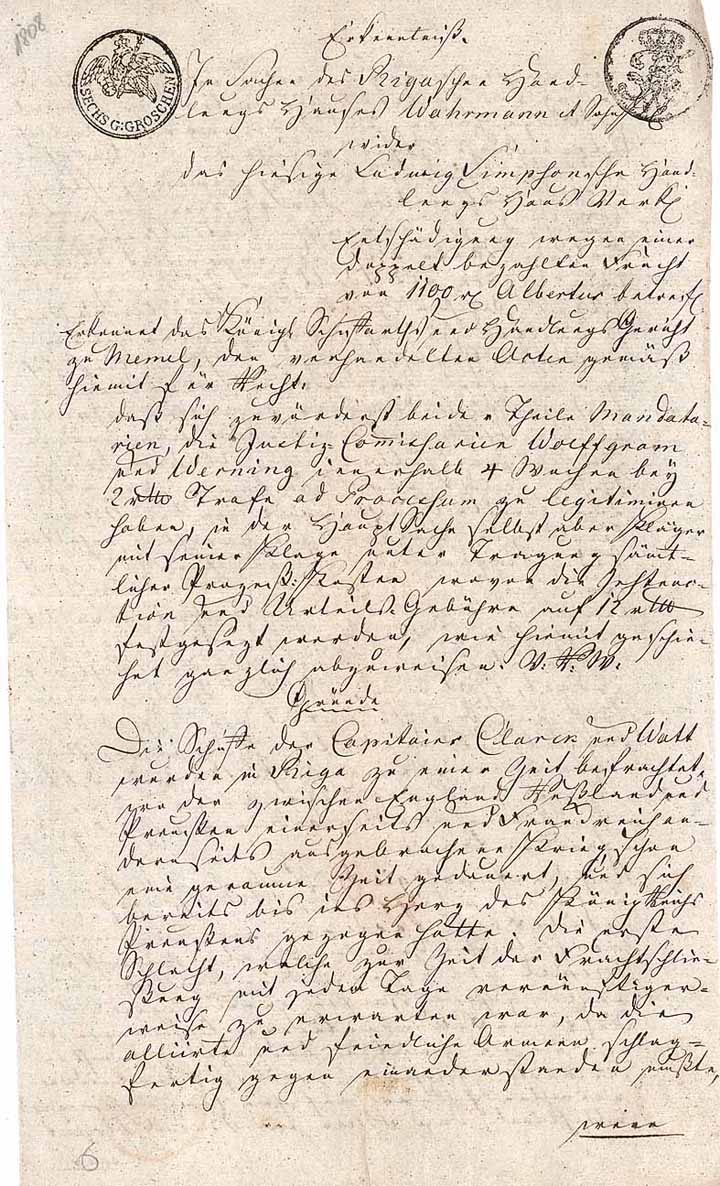 1808
Erkenntniß.
SECHS G: GROSCHEN
In Sachen des Rigaschen Hand-
lungs Hauses Wahrmann et Sohn
wider
das hiesige Ludwig Simphonsche Hand-
lungs Haus
Entschädigung wegen einer
doppelt bezahlten Fracht
von 1100 Albertus betreff.
Erkennet das Königl Schiffarths und Handlungs Gericht
zu Memel, den verhandelten Acten gemäß
hiemit für Recht.
daß sich zuvörderst beider Theile Mandata-
rien, die Justiz Commissarien Wolffgram
und Werning innerhalb 4 Wochen bey
2 rtlr Strafe ad Processum zu legitimiren
haben, in der Haupt Sache selbst aber Kläger
mit seiner Klage unter Tragung sämt-
licher Prozeß: Kosten, wovon die
tion und Urteils-Gebühren auf 12 rtlr
festgesezt werden, wie hiemit geschie-
het gänzlich abzuweisen. V. R. W.
Gründe
Die Schiffe der Capitains Clarck und Watt
wurden in Riga zu einer Zeit befrachtet,
wo der zwischen England Rußland und
Preussen einerseits und Frankreich an-
dererseits ausgebrochene Krieg schon
eine geraume Zeit gedauert, und sich
bereits bis ins Herz des Königreichs
Preussens gezogen hatte. Die erste
Schlacht, welche zur Zeit der Frachtschlie-
ßung mit jedem Tage vernünftiger-
weise zu erwarten war, da die
alliirte und feindliche Armeen schlag-
fertig gegen einander standen mußte,
wenn
6